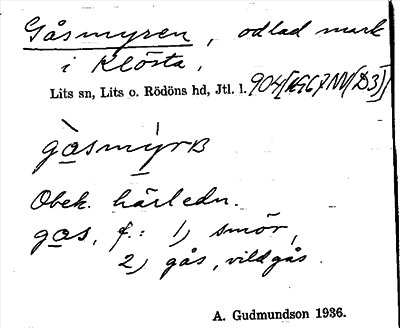 Gåsmyren, odlad mark
i Klösta,
Lits sn, Lits o. Rödöns hd, Jtl. l. 904
gasmyrB
Obek. härledn.
gas, f.: 1) smör,
2) gås, vildgås.
A. Gudmundson 1936.